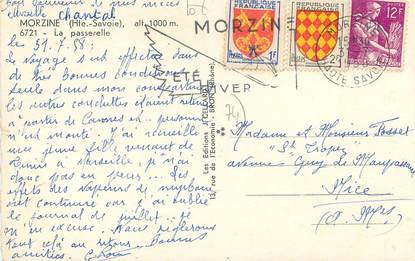 bon souvenir de mes mees
Chantal
MORZINE (Hte.-Savoie), alt. 1000 m.
6721 - La passerelle
le 31.7.58;
Le voyage s'est effectué dans
de très bonnes conditions
seule dans mon compartiment
les autres étaient
à partir de Cannes personne
n'est monté. J'ai accueilli
une jeune fille venant de
à Marseille, je n'ai
donc pas eu peur... Les
effets des vapeurs de
ont continué car j'ai oublié
le journal de juillet.. je
m'en excuse. Nous réglerons
tout cela au retour. Bonnes
amitiés.
Les Editions "CELLARD"
12, rue de l'Economie - BRON (Rhône)
MORZINE
ÉTÉ
HIVER
REPUBLIQUE FRANCAISE
1F
REPUBLIQUE FRANCAISE
12F
HTE SAVOIE
74
Madame et Monsieur Fosset
"St Tropez"
avenue Guy de Maupassant
Nice
(A. Mes)